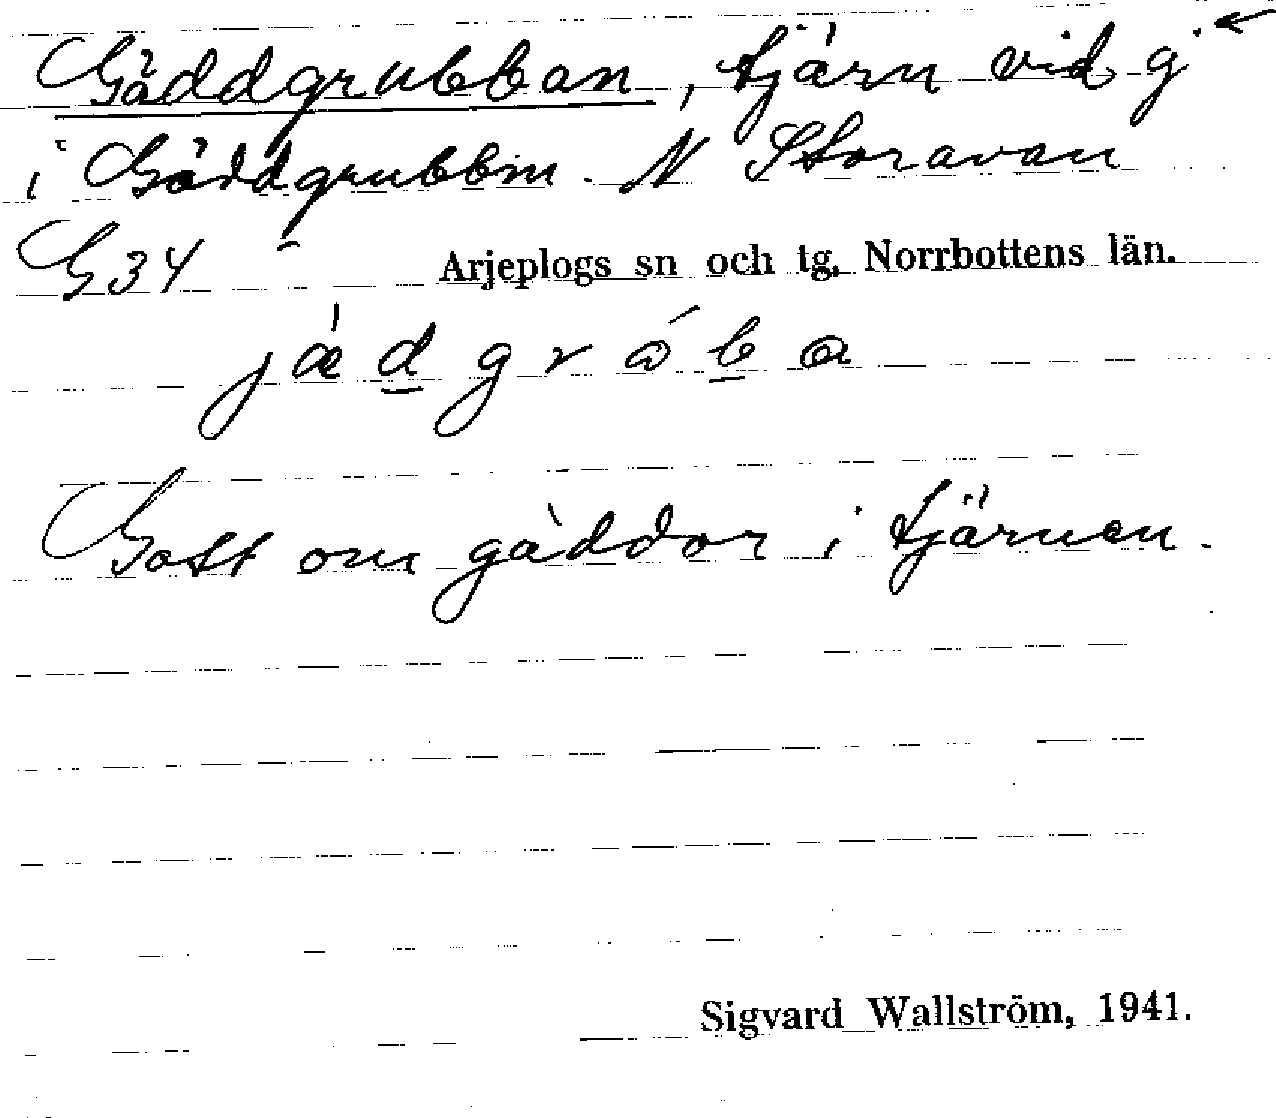 Gäddgrubban, tjärn vid g.
i Gäddgrubbm. N Storavan
G34 Arjeplogs sn och tg. Norrbottens län.
Gott om gäddor i tjärnen.
Sigvard Wallström, 1941.